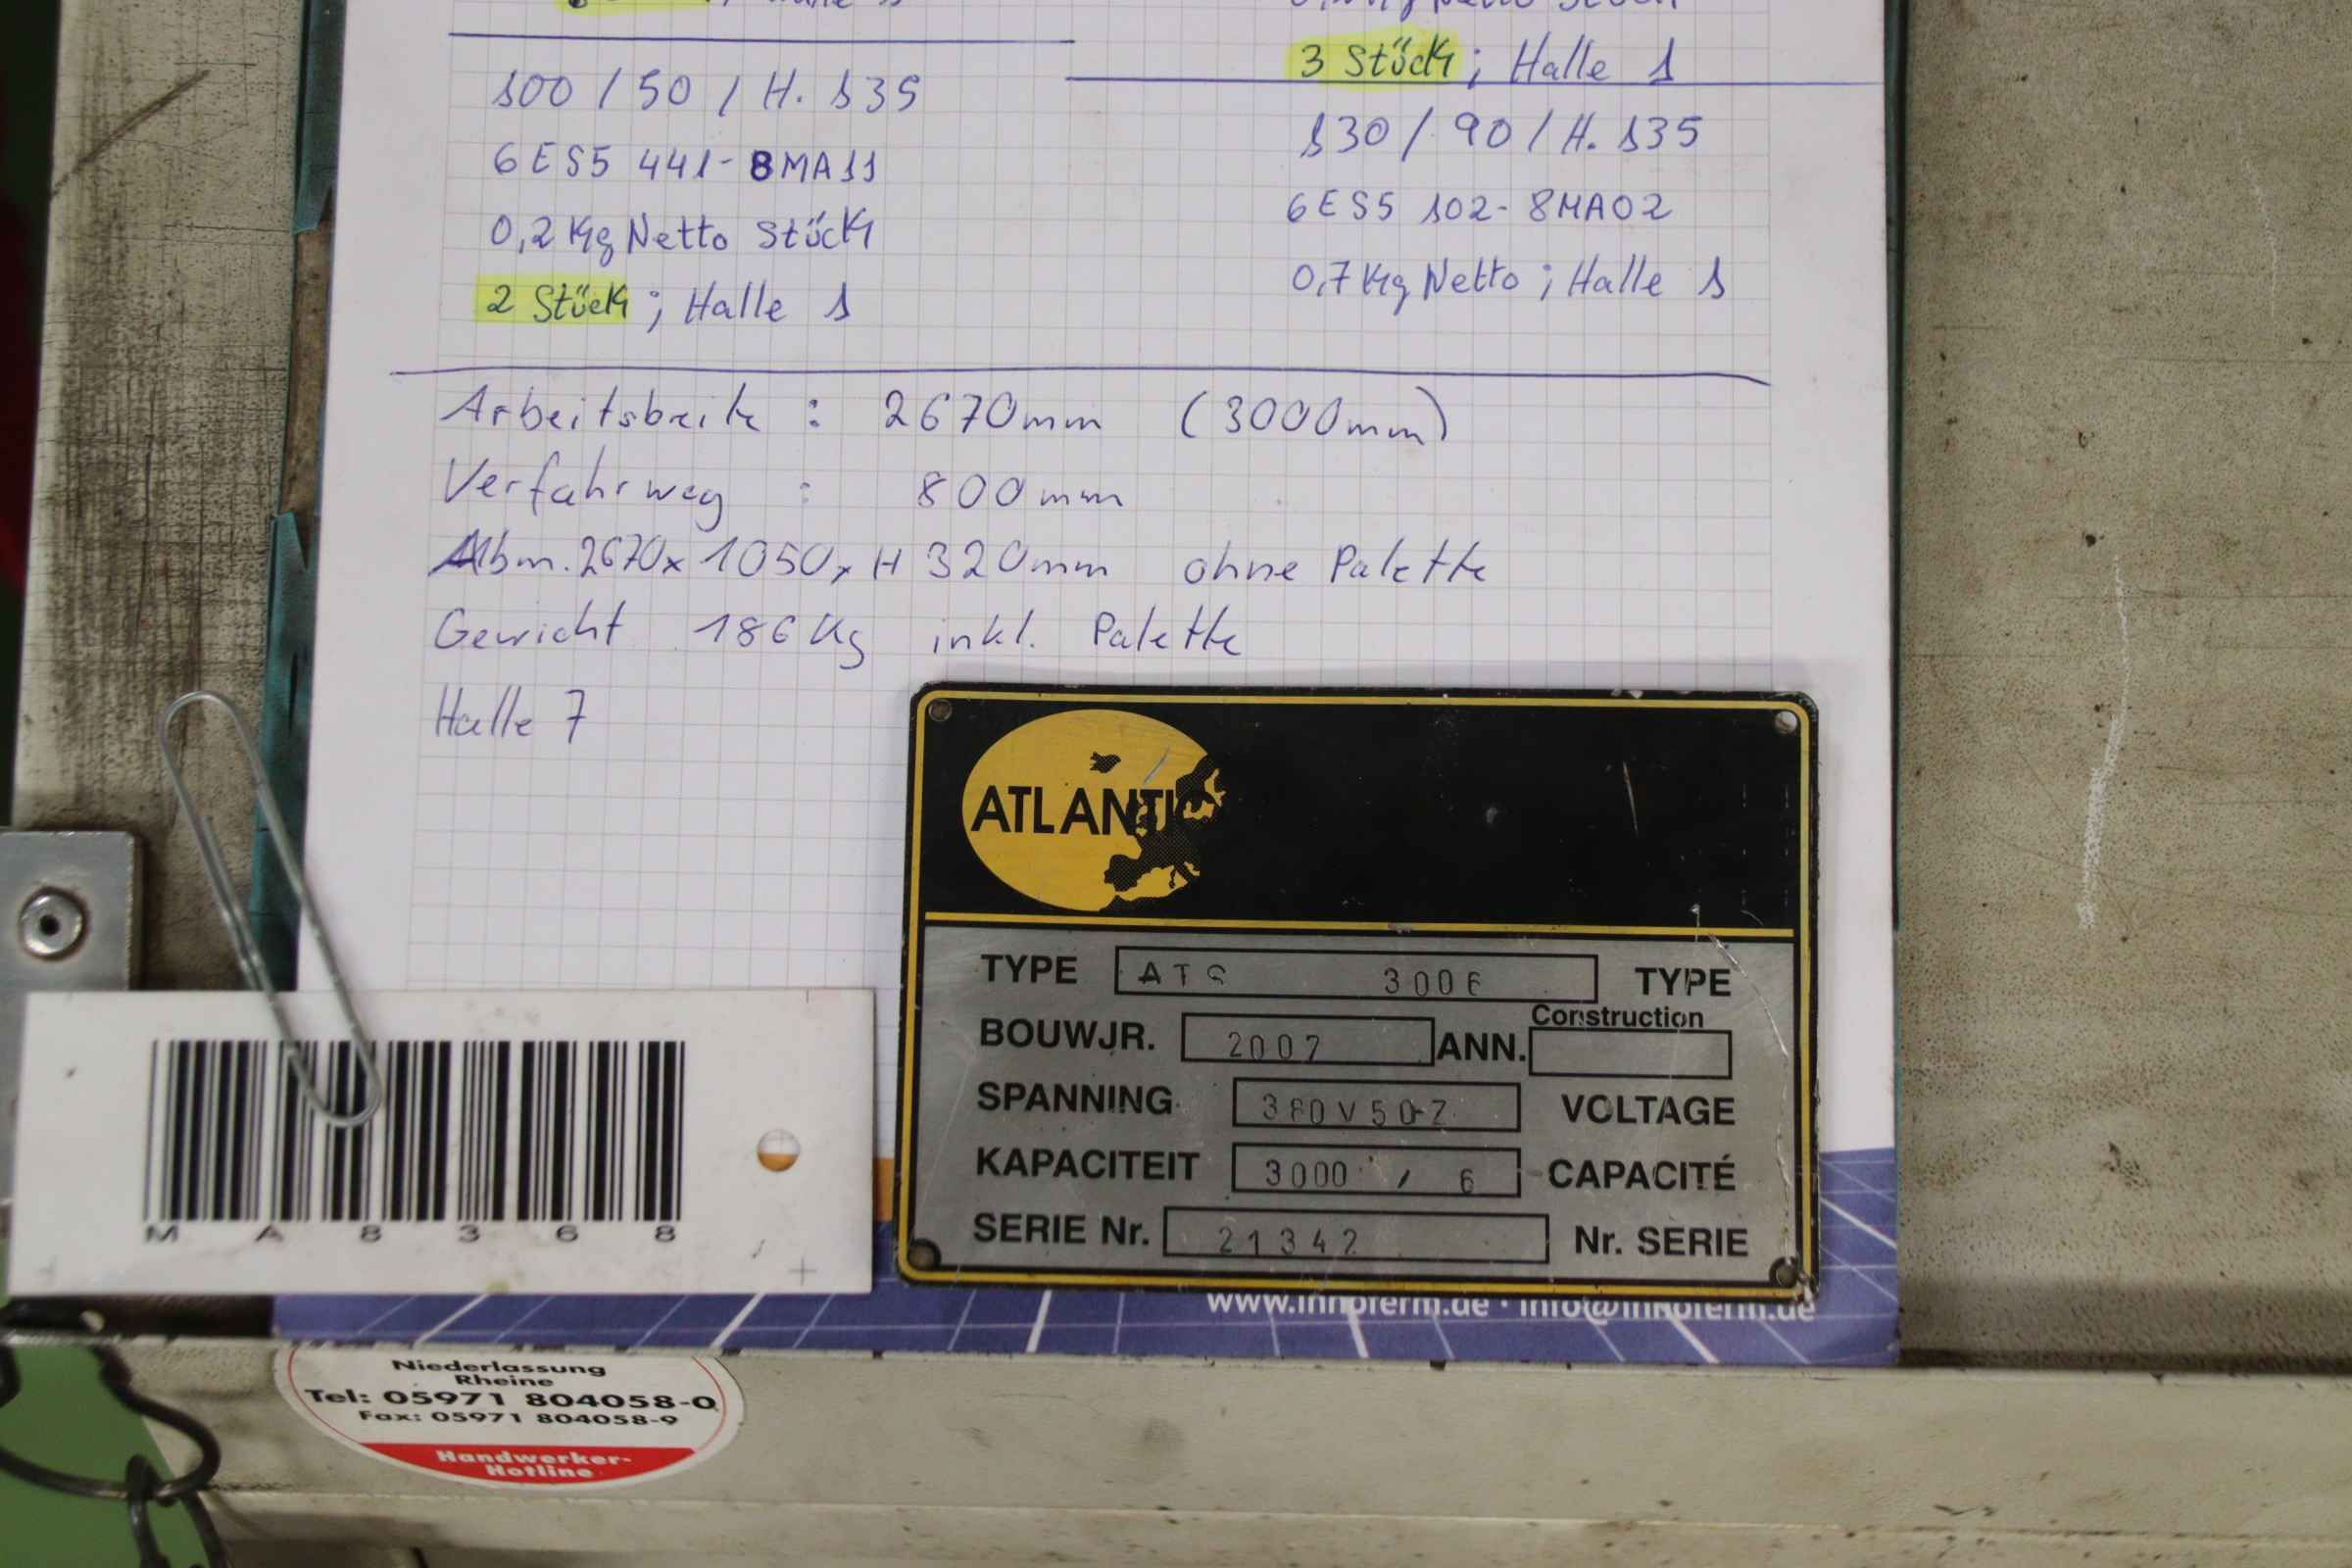 100 / 50 / H. 135
6ES5 441-8MA11
0,2 Kg Netto Stück
2 Stück ; Halle 1
3 Stück ; Halle 1
130 / 90 / H. 135
6ES5 102-8MA02
0,7 Kg Netto ; Halle 1
Arbeitsbreite : 2670mm (3000mm)
Verfahrweg : 800mm
Abm. 2670 x 1050 x H 320mm ohne Palette
Gewicht 186 Kg inkl. Palette
Halle 7
ATLANTIC
TYPE ATS 3006 TYPE
BOUWJR. 2007 ANN. Construction
SPANNING 380V50 Z VOLTAGE
KAPACITEIT 3000 / 6 CAPACITÉ
SERIE Nr. 21342 Nr. SERIE
MA8368
www.innoferm.de · info@innoferm.de
Niederlassung
Rheine
Tel: 05971 804058-0
Fax: 05971 804058-9
Handwerker-
Hotline